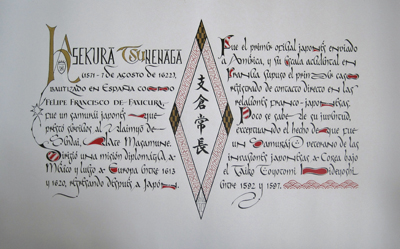 HASEKURA TSUNENAGA
(1571 - 7 de agosto de 1622),
bautizado en España como
Felipe Francisco de Faxicura,
fue un samurái japonés que
prestó servicios al daimyo de
Sendai, Date Masamune.
Dirigió una misión diplomática a
México y luego a Europa entre 1613
y 1620, regresando después a Japón.
支倉常長
Fue el primer oficial japonés enviado
a América, y su escala accidental en
Francia supuso el primer caso
registrado de contacto directo en las
relaciones franco-japonesas.
Poco se sabe de su juventud,
exceptuando el hecho de que fue
un Samurái veterano de las
invasiones japonesas a Corea bajo
el Taiko Toyotomi Hideyoshi
entre 1592 y 1597.